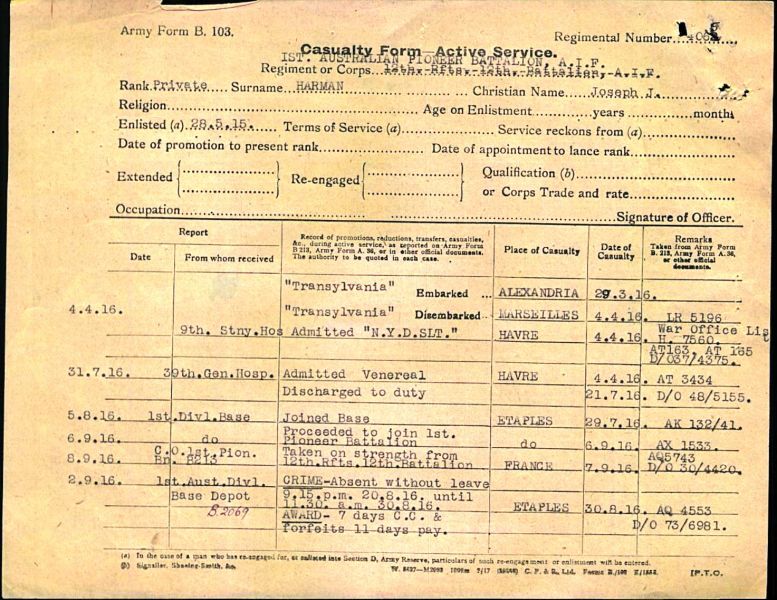 Army Form B. 103.
Regimental Number
Casualty Form—Active Service.
1ST. AUSTRALIAN PIONEER BATTALION, A.I.F.
Regiment or Corps 12th. Rfts. 12th. Battalion, A.I.F.
Rank Private Surname HARMAN Christian Name Joseph J.
Religion Age on Enlistment years months
Enlisted (a) 28.5.15. Terms of Service (a) Service reckons from (a)
Date of promotion to present rank Date of appointment to lance rank
Extended Re-engaged Qualification (b)
or Corps Trade and rate
Occupation Signature of Officer.
Report
Date From whom received
Record of promotions, reductions, transfers, casualties, &c., during active service, as reported on Army Form B 213, Army Form A. 36, or in other official documents. The authority to be quoted in each case.
Place of Casualty
Date of Casualty
Remarks
Taken from Army Form B. 213, Army Form A. 36, or other official documents.
"Transylvania" Embarked ... ALEXANDRIA 29.3.16.
4.4.16. "Transylvania" Disembarked MARSEILLES 4.4.16. LR 5196
9th. Stny.Hos Admitted "N.Y.D.SLT." HAVRE 4.4.16. War Office List
H. 7560.
AT163, AT 165
D/037/4375.
31.7.16. 39th.Gen.Hosp. Admitted Venereal HAVRE 4.4.16. AT 3434
Discharged to duty 21.7.16. D/O 48/5155.
5.8.16. 1st.Divl.Base Joined Base ETAPLES 29.7.16. AK 132/41.
6.9.16. do Proceeded to join 1st.
Pioneer Battalion do 6.9.16. AX 1533.
8.9.16. C.O.1st.Pion.
Bn. B213 Taken on strength from
12th.Rfts.12th.Battalion FRANCE 7.9.16. AQ5743
D/O 30/4420.
2.9.16. 1st.Aust.Divl.
Base Depot
B.2069
CRIME-Absent without leave
9.15.p.m. 20.8.16. until
11.30. a.m. 30.8.16. ETAPLES 30.8.16. AQ 4553
AWARD- 7 days C.C. &
forfeits 11 days pay. D/O 73/6981.
(a) In the case of a man who has re-engaged for, or enlisted into Section D, Army Reserve, particulars of such re-engagement or enlistment will be entered.
(b) Signaller, Shoeing-Smith, &c.
[P.T.O.